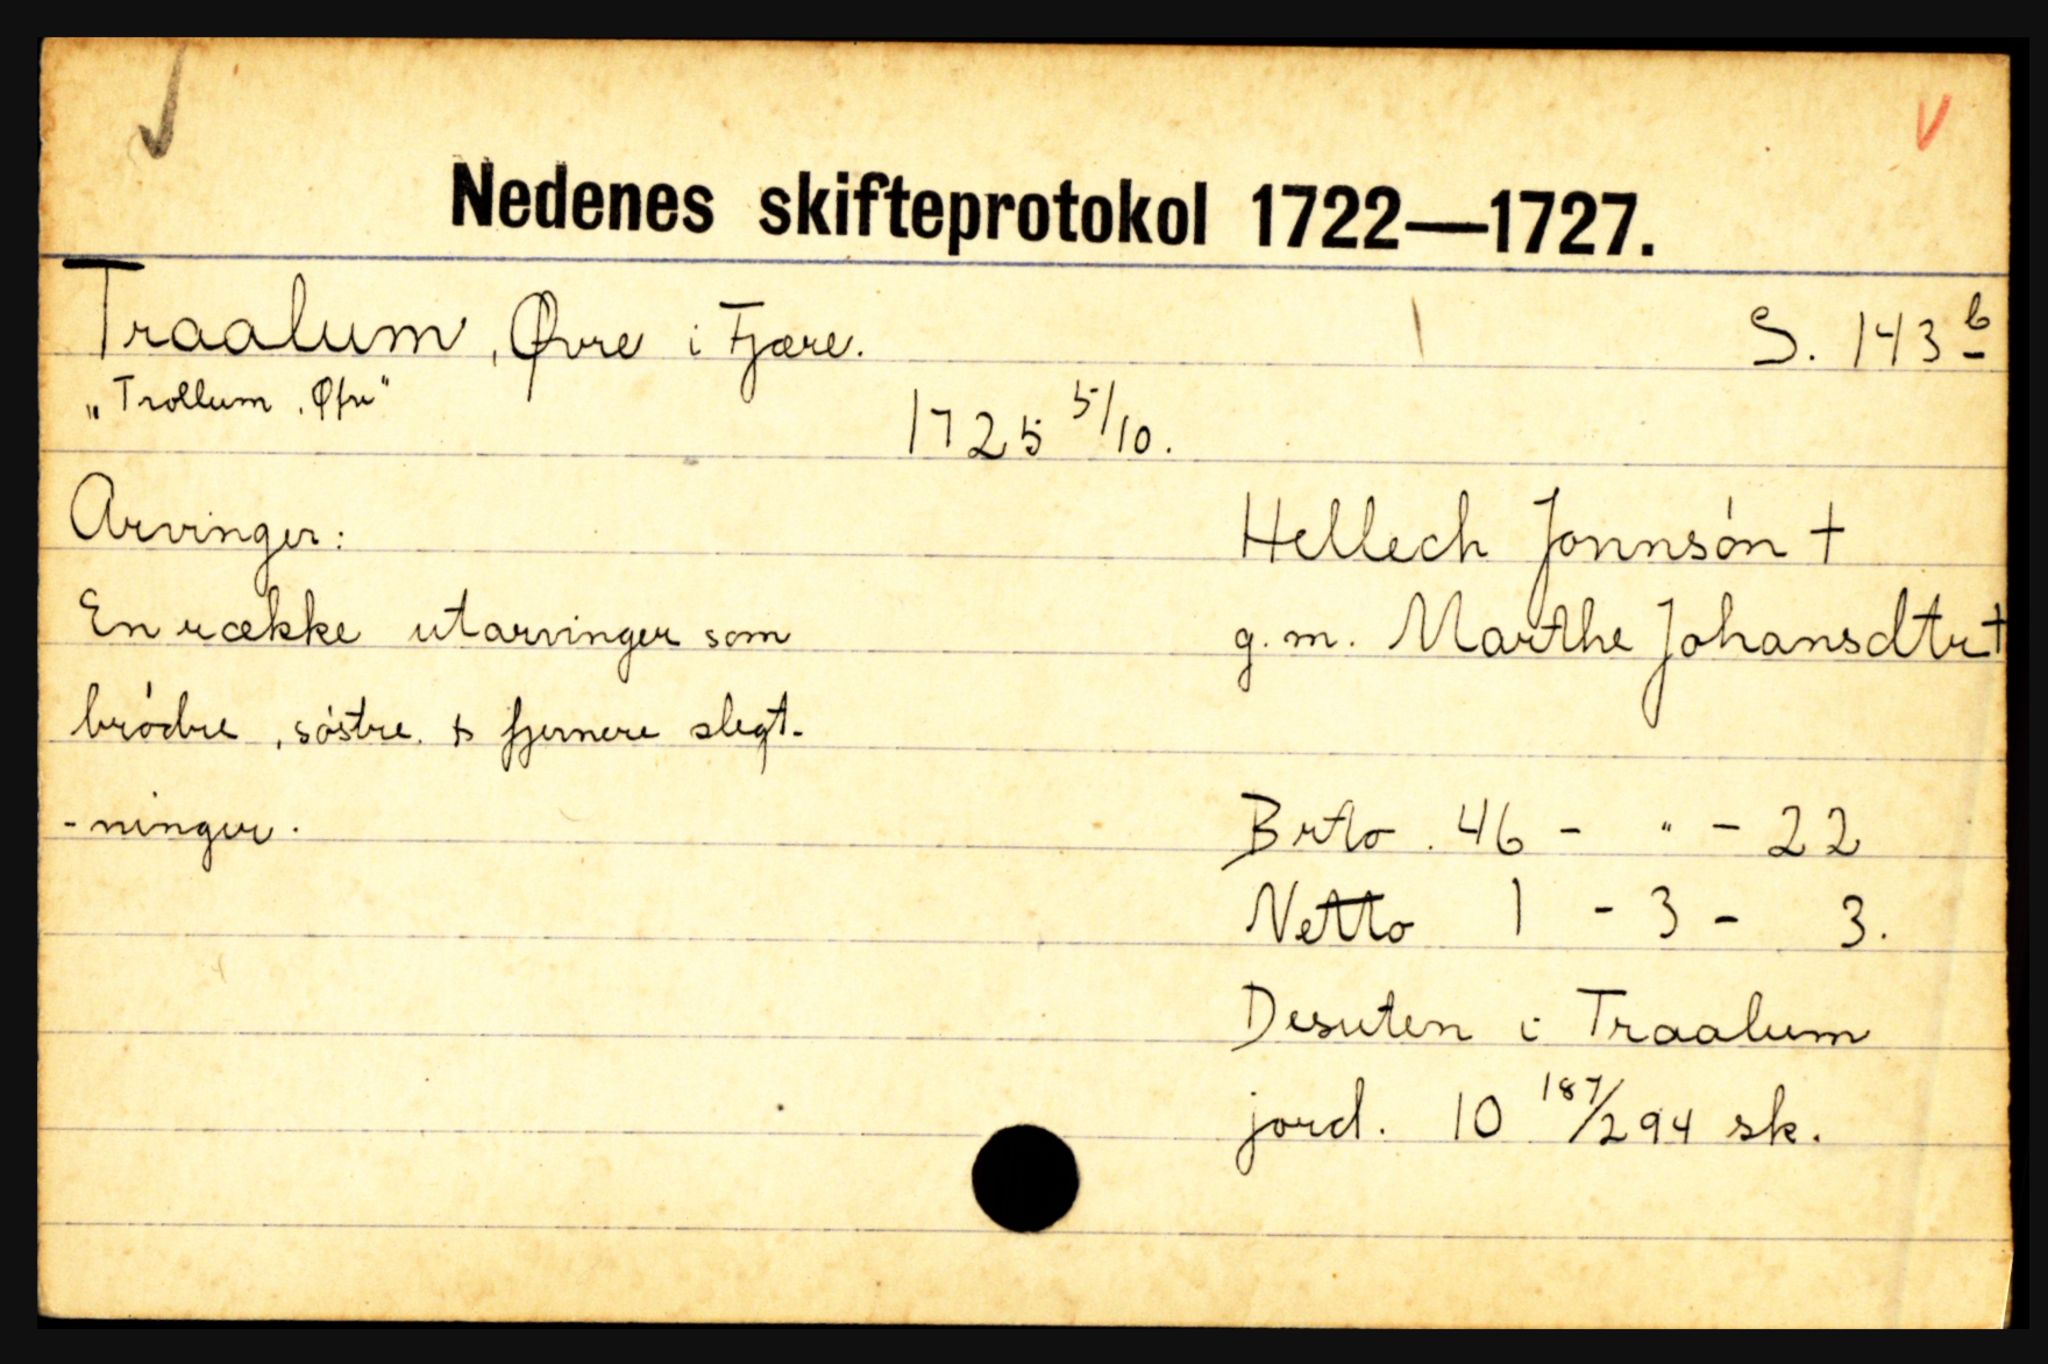 Nedenes skifteprotokol 1722—1727.
Traalum, Øvre i Fjære. S. 143 b
„Trollum, Øfre"
1725 5/10.
Arvinger:
Hellech Jonnsøn †
En række utarvinger som
g. m. Marthe Johansdtr †
brødre, søstre & fjernere slegt-
-ninger.
Brto. 46 - " - 22
Netto 1 - 3 - 3.
Desuten i Traalum
jord. 10 187/294 sk.